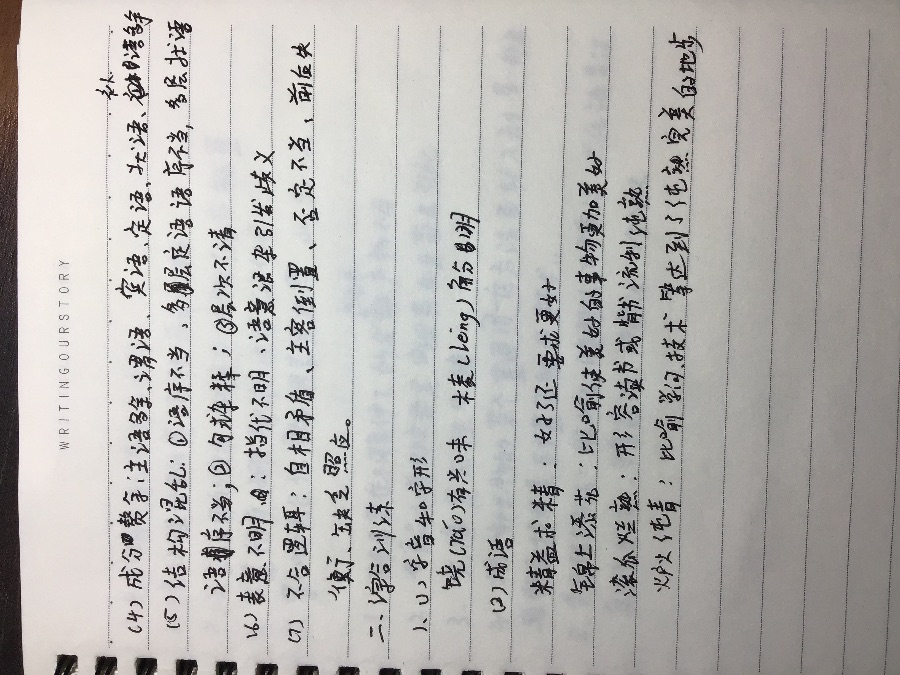 WRITINGOURSTORY
(4) 成分赘余：主语多余、谓语、宾语、定语、状语、补语多余
(5) 结构混乱：①语序不当，多层定语语序不当，多层状语
语序不当；②句式杂糅；③层次不清
(6) 表意不明：指代不明、语意混杂引发歧义
(7) 不合逻辑：自相矛盾、主客倒置、否定不当，前后失
衡、缺乏照应。
二、综合训练
1、(1) 字音和字形
饶(ráo)有兴味 棱(léng)角分明
(2) 成语
精益求精：好了还要求更好
锦上添花：比喻使美好的事物更加美好
滚瓜烂熟：形容读书或背书流利纯熟
炉火纯青：比喻学问、技术等达到了纯熟完美的地步